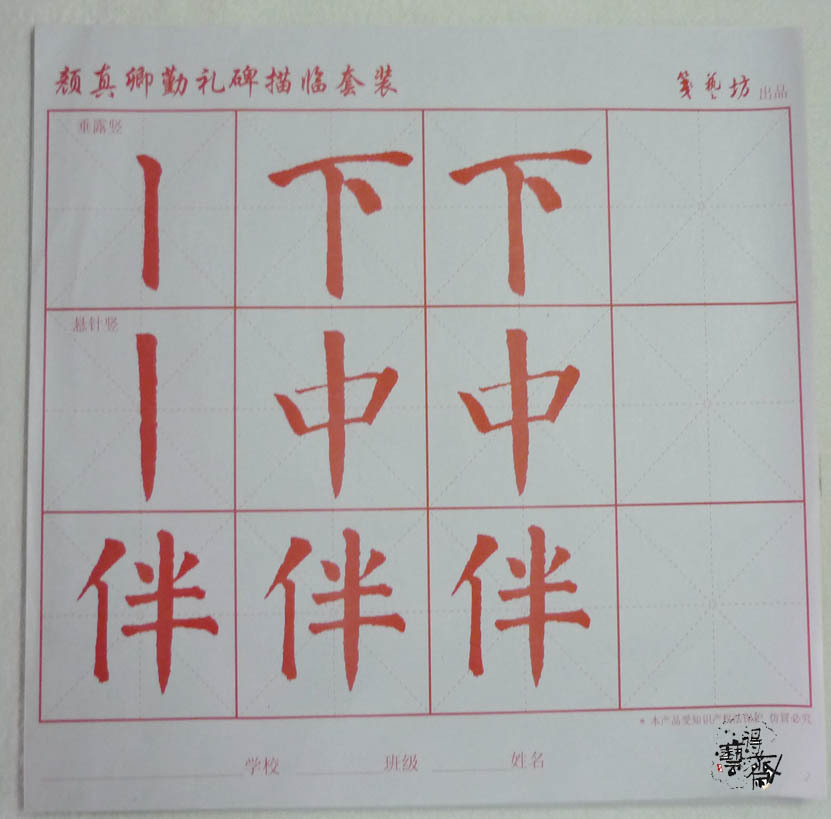 颜真卿勤礼碑描临套装 笺艺坊 出品
垂露竖
丨 下 下
悬针竖
丨 中 中
伴 伴 伴
* 本产品受知识产权法保护 仿冒必究
学校 班级 姓名